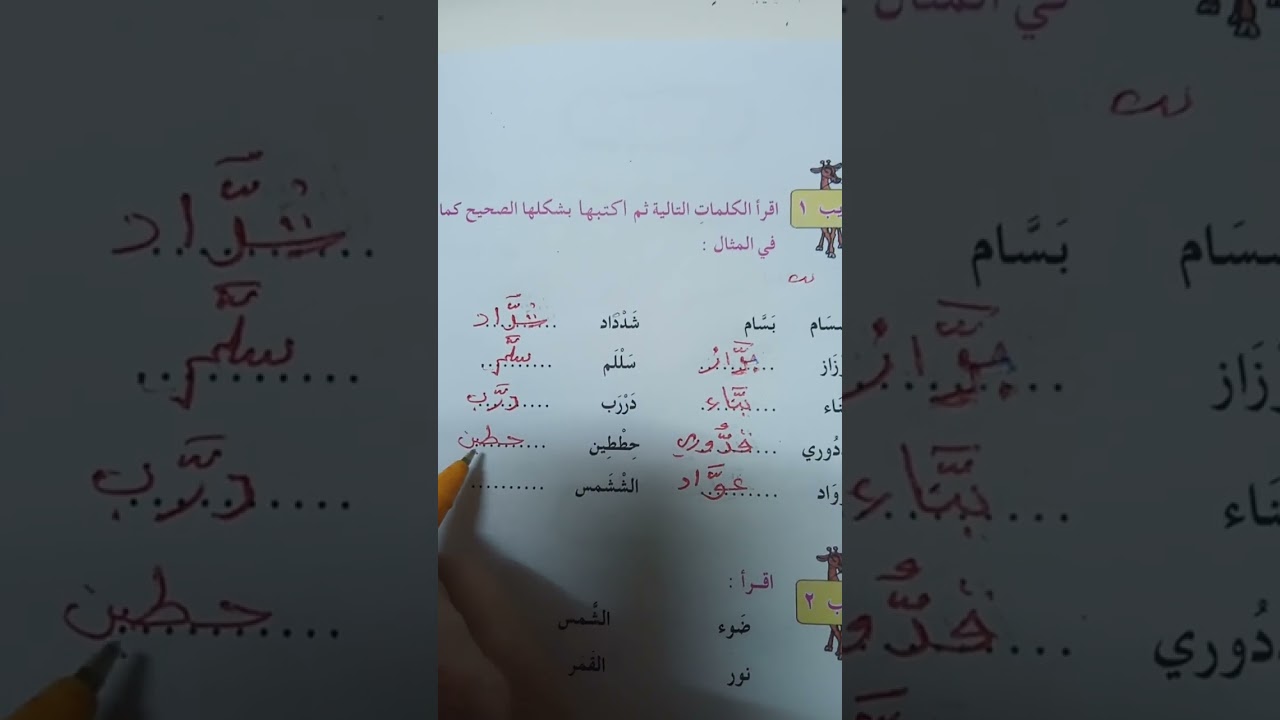 في المثال
نت
يب ١ اقرأ الكلماتِ التالية ثم اكتبها بشكلها الصحيح كما
في المثال :
نت
سَام بَسَّام شَدْدَاد شَدَّاد
زَاز جَوَّاز سَلْلَم سلَّم
نَاء بَنَّاء دَرْرَب درَّب
دُوري خَدُّوري حِطْطِين حطين
وَاد عَوَّاد الشْشَمس ..........
ب ٢ اقـرأ :
ضَوء الشَّمس
نور القَمَر